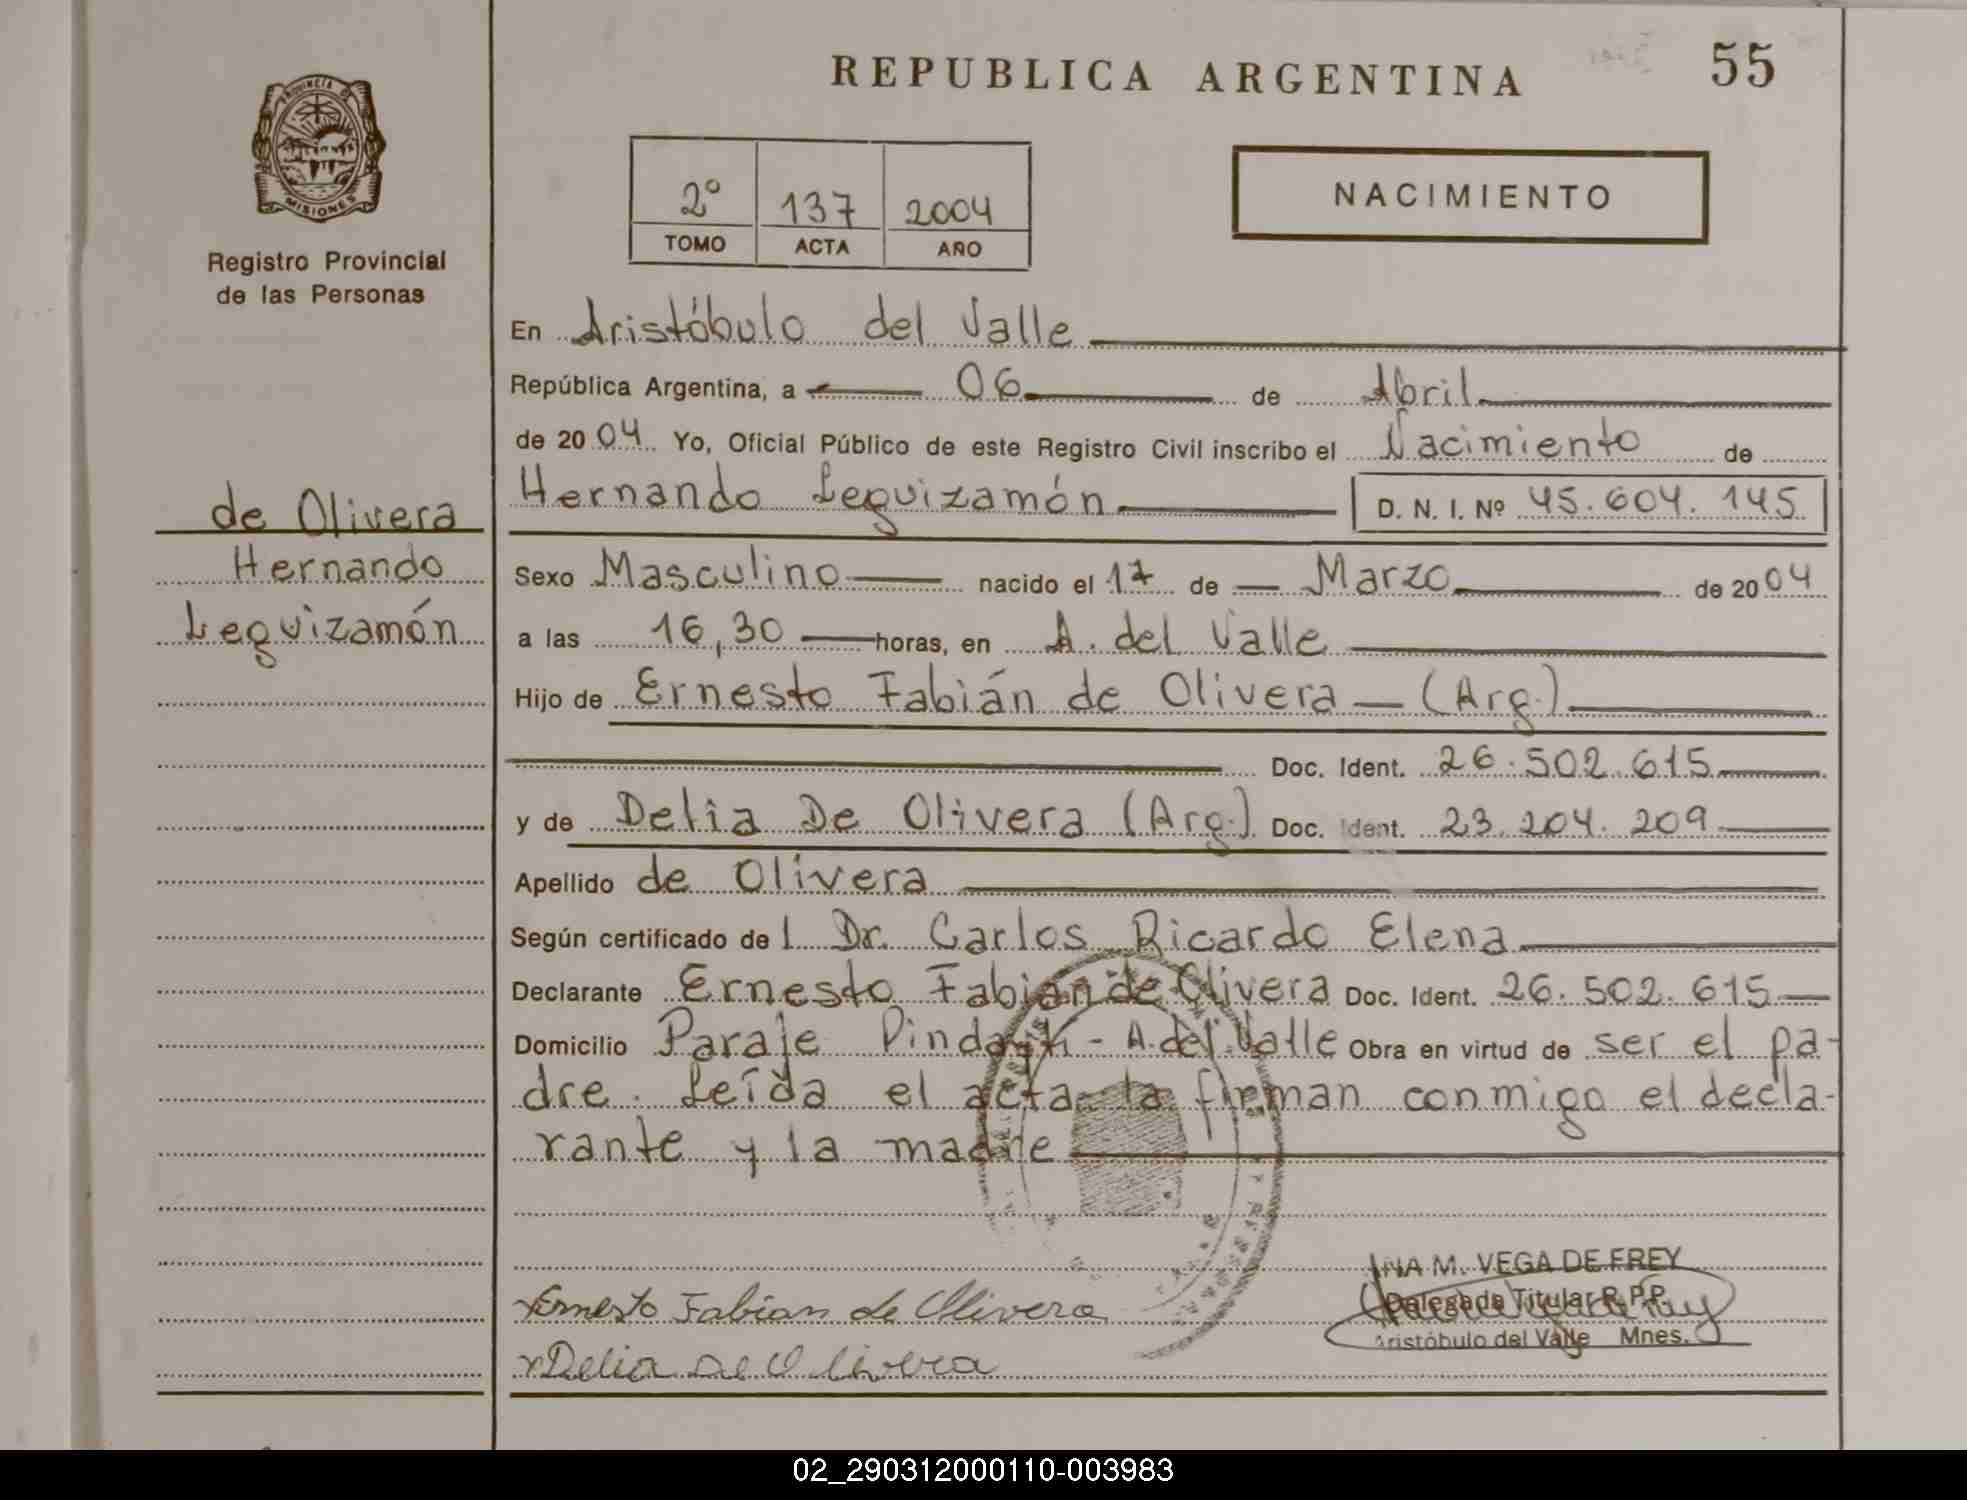 REPUBLICA ARGENTINA
55
PROVINCIA DE
MISIONES
Registro Provincial
de las Personas
2º 137 2004
TOMO ACTA AÑO
NACIMIENTO
En Aristóbulo del Valle
República Argentina, a 06 de Abril
de 2004 Yo, Oficial Público de este Registro Civil inscribo el Nacimiento de
Hernando Leguizamón D. N. I. Nº 45.604.145
de Olivera
Hernando
Leguizamón
Sexo Masculino nacido el 17 de Marzo de 2004
a las 16,30 horas, en A. del Valle
Hijo de Ernesto Fabián de Olivera — (Arg.)
Doc. Ident. 26.502.615
y de Delia De Olivera (Arg.) Doc. Ident. 23.204.209
Apellido de Olivera
Según certificado de l Dr. Carlos Ricardo Elena
Declarante Ernesto Fabián de Olivera Doc. Ident. 26.502.615
Domicilio Paraje - A. del Valle Obra en virtud de ser el pa-
dre. Leída el acta la firman conmigo el decla-
rante y la madre
Ernesto Fabian de Olivera
Delia De Olivera
ANA M. VEGA DE FREY
Delegada Titular R.P.P.
Aristóbulo del Valle Mnes.
02_290312000110-003983